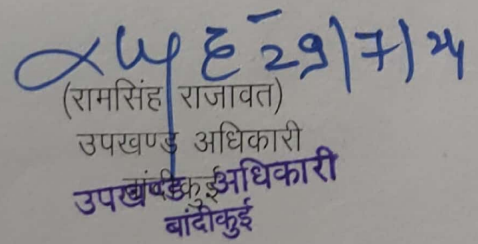 29/7/24
(रामसिंह राजावत)
उपखण्ड अधिकारी
बांदीकुई
उपखण्ड अधिकारी
बांदीकुई